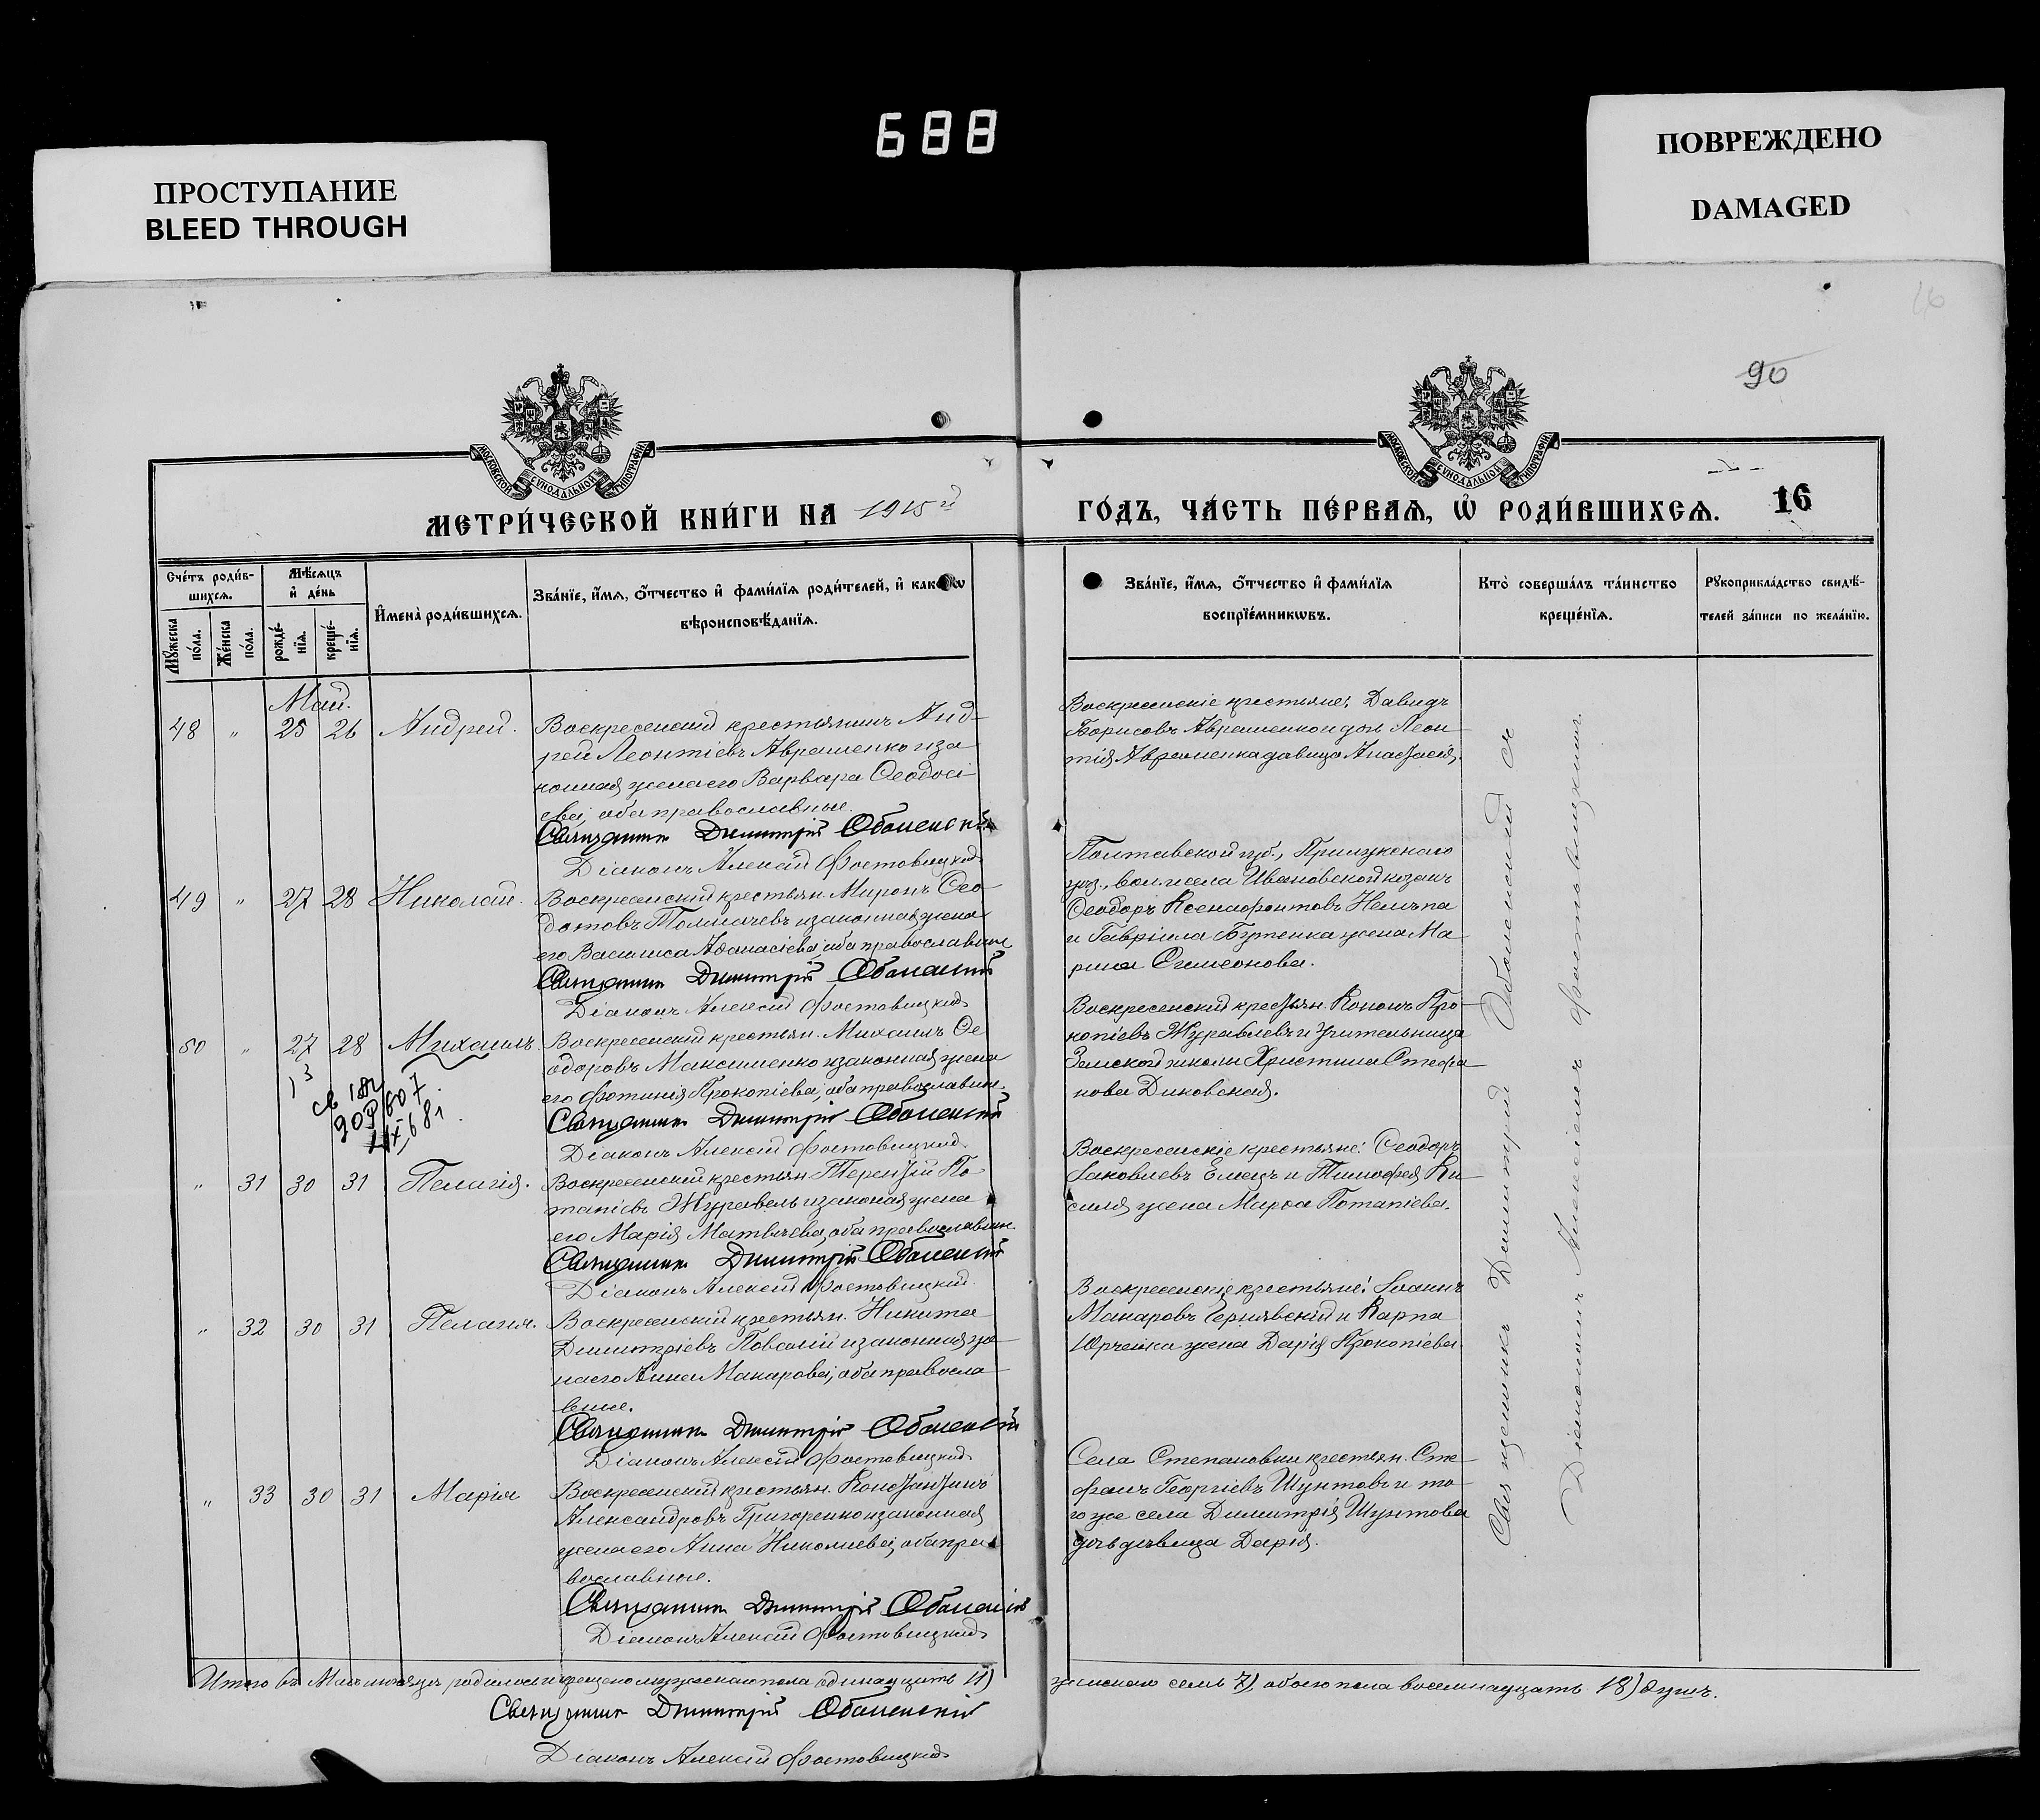 688
ПРОСТУПАНИЕ
BLEED THROUGH
ПОВРЕЖДЕНО
DAMAGED
16
90
МОСКОВСКОЙ СУНОДАЛЬНОЙ ТИПОГРАФІИ
МОСКОВСКОЙ СУНОДАЛЬНОЙ ТИПОГРАФІИ
МЕТРИ́ЧЕСКОЙ КНИ́ГИ НА 1915й
ГО́ДЪ, ЧА́СТЬ ПЕ́РВАѦ, Ѡ҆ РОДИ́ВШИХСѦ. 16
Сче́тъ роди́в-
шихсѧ.
Мꙋ́жеска по́ла.
Же́нска по́ла.
Мѣ́сѧцъ
и҆ де́нь
рожде́-
нїѧ.
креще́-
нїѧ.
И҆мена̀ роди́вшихсѧ.
Зва́нїе, и҆́мѧ, ѻ҆́тчество и҆ фами́лїѧ роди́телей, и҆ как
вѣроисповѣ́данїѧ.
Зва́нїе, и҆́мѧ, ѻ҆́тчество и҆ фами́лїѧ
воспрїе́мникѡвъ.
Кто̀ соверша́лъ та́инство
креще́нїѧ.
Рꙋкоприкла́дство свидѣ́-
телей за́писи по жела́нїю.
Май.
48 " 25 26 Андрей.
Воскресенский крестьянинъ Анд-
рей Леонтіевъ Авраменко и за
конная жена его Варвара Ѳеодосі
ева, оба православные.
Священникъ Димитрій Оболенскій
Діаконъ Алексій Фостовицкій
Воскресенскіе крестьяне: Давидъ
Борисовъ Авраменко и дочь Леон
тія Авраменка дѣвица Анастасія.
49 " 27 28 Николай.
Воскресенский крестьян. Миронъ Ѳео-
дотовъ Толмачевъ и законная жена
его Василиса Аѳанасіева, оба православные
Священникъ Димитрій Оболенскій
Діаконъ Алексій Фостовицкій
Полтавской губ., Прилукскаго
уѣз., вол. и села Ивановской козакъ
Ѳеодоръ Ксенофонтовъ Нелѣпа
и Гавріила Бутенка жена Ма
рина Симеонова.
50 " 27 28 Михаилъ.
Воскресенский крестьян. Михаилъ Ѳе
одоровъ Максименко и законная жена
его Фотинія Прокопіева, оба православн.
Священникъ Димитрій Оболенскій
Діаконъ Алексій Фостовицкій
Воскресенский крестьян. Кононъ Про-
копіевъ Журавлевъ и учительница
Земской школы Христина Стефа
нова Диковская.
" 31 30 31 Пелагія.
Воскресенский крестьян. Терентій По-
тапіевъ Журавель и законая жена
его Марія Матвѣева, оба православн.
Священникъ Димитрій Оболенскій
Діаконъ Алексій Фостовицкій
Воскресенскіе крестьяне: Ѳеодоръ
Іаковлевъ Емецъ и Тимофея Ки
силя жена Марѳа Потапіева.
" 32 30 31 Пелагия.
Воскресенский крестьян. Никита
Димитріевъ Повалій и законная же
на его Анна Макарова, оба правосла
вные.
Священникъ Димитрій Оболенскій
Діаконъ Алексій Фостовицкій
Воскресенскіе крестьяне: Іоаннъ
Макаровъ Чернявский и Карпа
Юрченка жена Дарія Прокопіева.
" 33 30 31 Марія
Воскресенский крестьян. Константинъ
Александровъ Григоренко и законная
жена его Анна Николаева, оба пра
вославные.
Священникъ Димитрій Оболенскій
Діаконъ Алексій Фостовицкій
Села Степановки крестьян. Сте-
фанъ Георгіевъ Шунтовъ и то-
го же села Димитрія Шунтова
дочь дѣвица Дарія.
Священникъ Димитрий Оболенский съ
Діакономъ Алексіемъ Фостовицкимъ.
Итого въ Маѣ мѣсяцѣ родилось и крещено мужескаго пола одинадцать 11)
женскаго семь 7), обоего пола восемнадцать 18) душъ.
Священникъ Димитрій Оболенскій
Діаконъ Алексій Фостовицкій